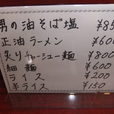 男の油そば塩 ¥850
正油ラーメン ¥600
炙りチャーシュー麺 ¥800
細麺 ¥600
ライス ¥200
半ライス ¥150